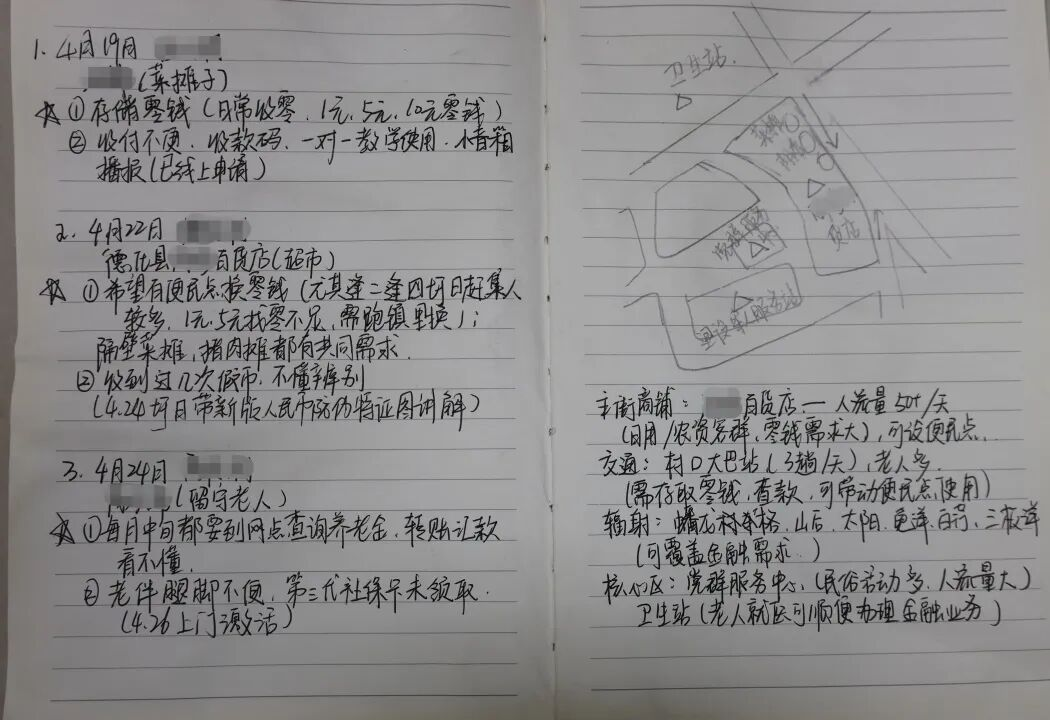 1. 4月19日
(菜摊子)
☆ ①存储零钱（日常收零，1元,5元,10元零钱）
②收付不便，收款码，一对一教学使用，小音箱
播报(已线上申请)
2. 4月22日
德化县 百货店(超市)
☆ ①希望有便民点换零钱（尤其逢二逢四圩日赶集人
较多，1元,5元找零不足，需跑镇里换）；
隔壁菜摊，猪肉摊都有共同需求.
②收到过几次假币，不懂辨别
(4.24圩日带新版人民币防伪特征图讲解)
3. 4月24日
(留守老人)
☆ ①每月中旬都要到网点查询养老金，转账汇款
看不懂.
②老伴腿脚不便，第三代社保卡未领取.
(4.26上门激活)
卫生站.
菜摊
百货店
党群服务
服务站
主街商铺： 百货店 — 人流量50+/天
(日用/农资客群，零钱需求大)，可设便民点.
交通：村口大巴站(3趟/天)，老人多.
(需存取零钱，查款，可带动便民点使用)
辐射： 村 格，山后，太阳， 洋， ，三 洋
(可覆盖金融需求.)
核心区：党群服务中心，(民俗活动多，人流量大)
卫生站(老人就医可顺便办理金融业务)